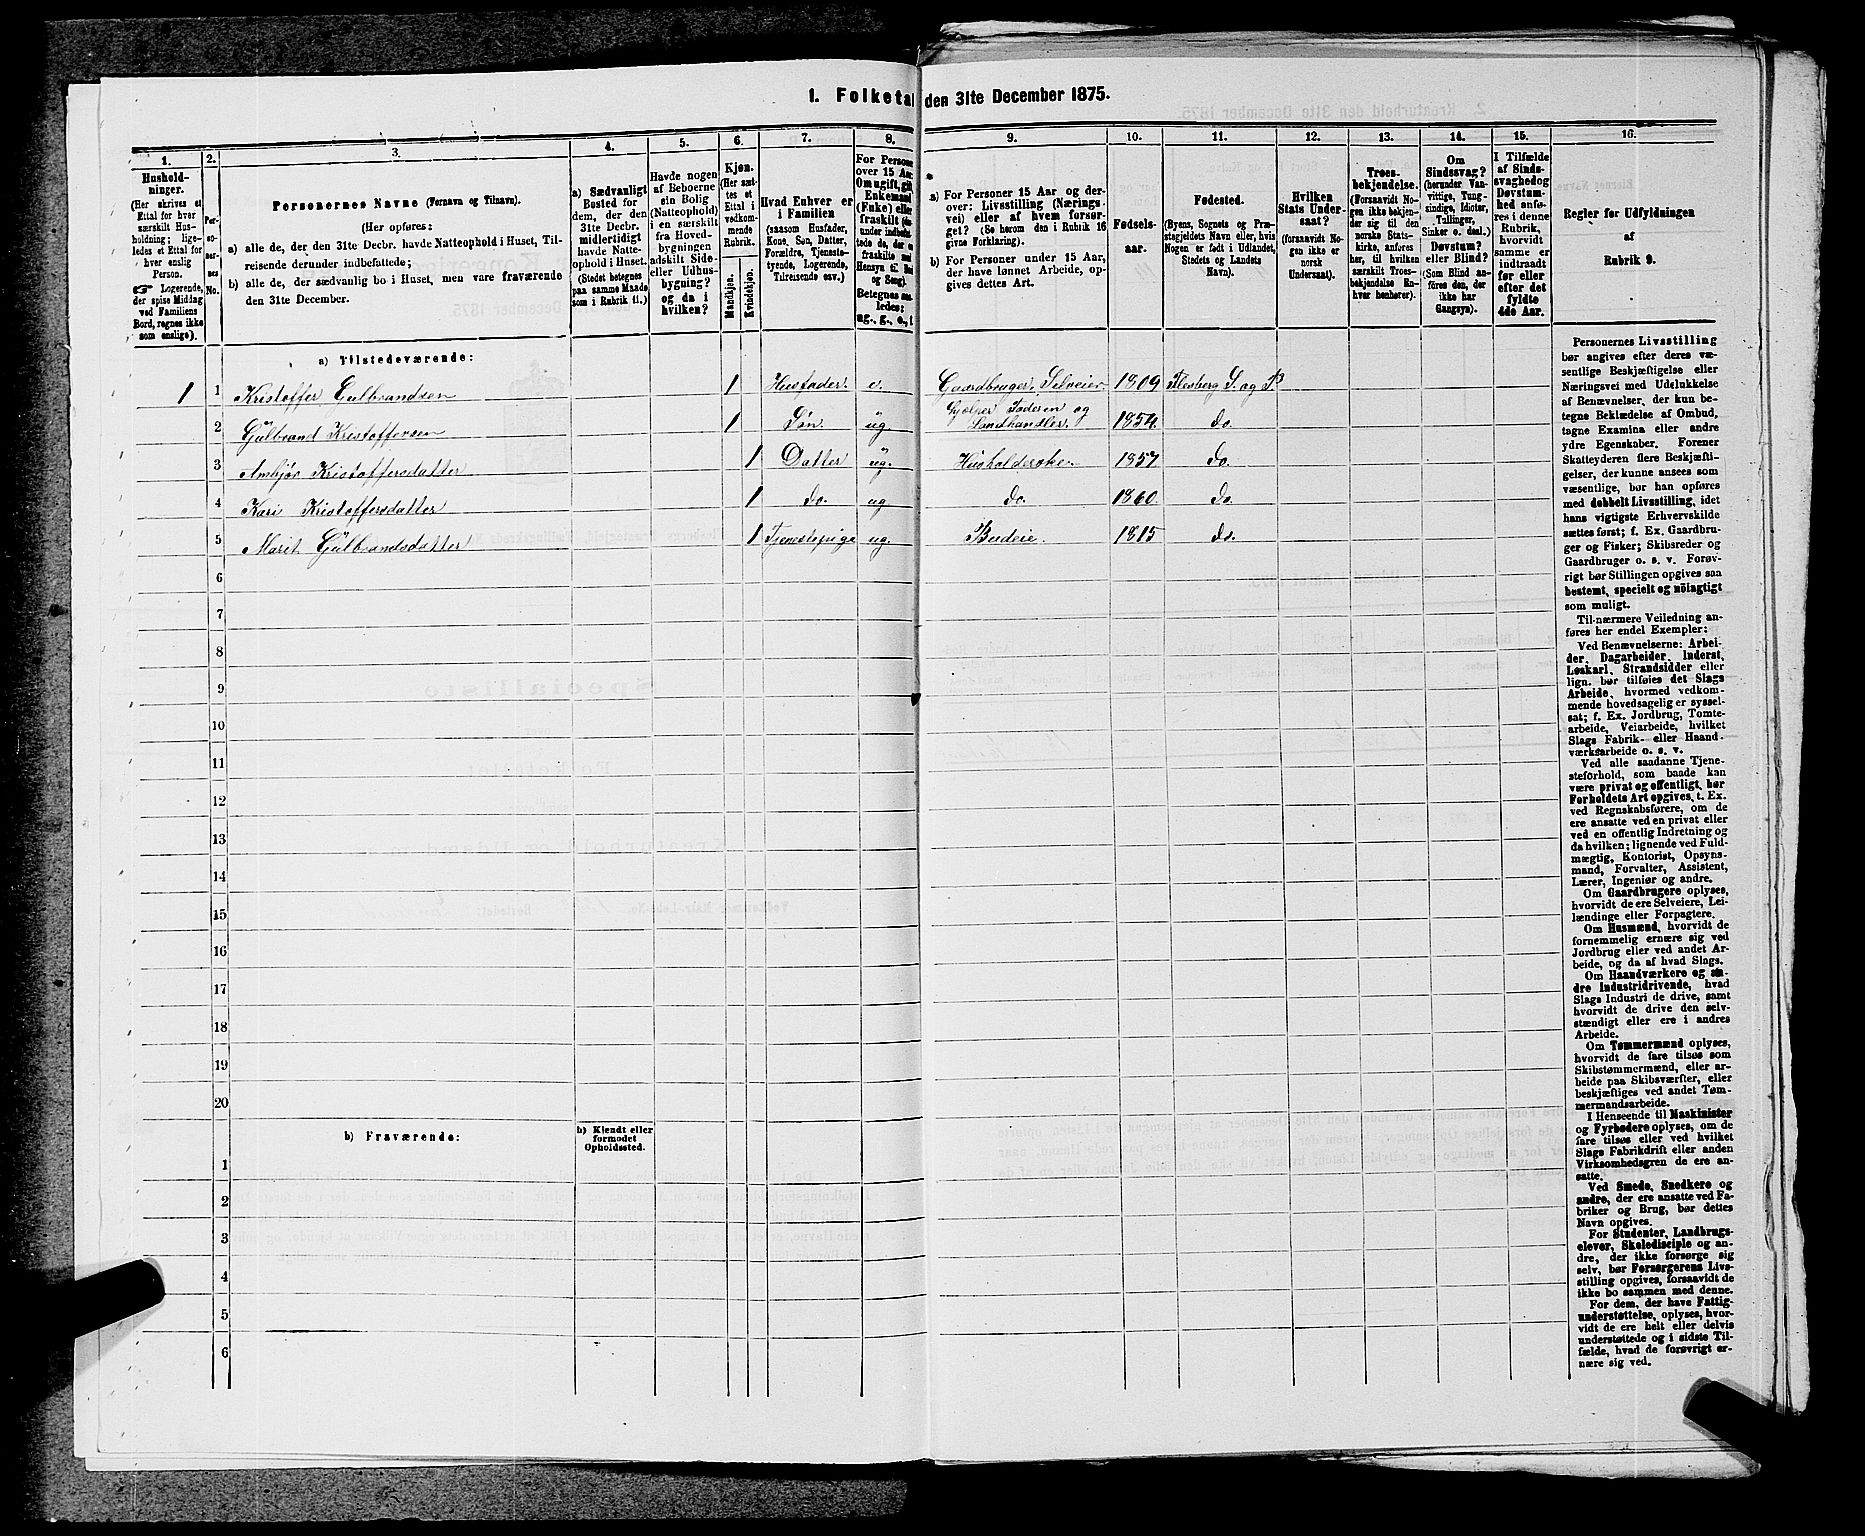 1. Folketal den 31te December 1875.
1. 2. 3. 4. 5. 6. 7. 8. 9. 10. 11. 12. 13. 14. 15. 16.
Hushold-
ninger.
(Her skrives et
Ettal for hver
særskilt Hus-
holdning; lige-
ledes et Ettal for
hver enslig
Person.
☞ Logerende,
der spise Middag
ved Familiens
Bord, regnes ikke
som enslige).
Per-
so-
ner-
nes
No.
Personernes Navne (Fornavn og Tilnavn).
(Her opføres:
a) alle de, der den 31te Decbr. havde Natteophold i Huset, Til-
reisende derunder indbefattede;
b) alle de, der sædvanlig bo i Huset, men vare fraværende
den 31te December.
a) Sædvanligt
Bosted for
dem, der den
31te Decbr.
midlertidigt
havde Natte-
ophold i Huset.
(Stedet betegnes
paa samme Maade
som i Rubrik 11.)
Havde nogen
af Beboerne
sin Bolig
(Natteophold)
i en særskilt
fra Hoved-
bygningen
adskilt Side-
eller Udhus-
bygning?
og da i
hvilken?
Kjøn.
(Her sæt-
tes et
Ettal i
vedkom-
mende
Rubrik.
Mandkjøn.
Kvindekjøn.
Hvad Enhver er
i Familien
(saasom Husfader,
Kone, Søn, Datter,
Forældre, Tjeneste-
tyende, Logerende,
Tilreisende osv.)
For Persone
over 15 Aar
Om ugift, gift
Enkemand
(Enke) eller
fraskilt
a) For Personer 15 Aar og der-
over: Livsstilling (Nærings-
vei) eller af hvem forsør-
get? (Se herom den i Rubrik 16
givne Forklaring).
b) For Personer under 15 Aar,
der have lønnet Arbeide, op-
gives dettes Art.
Fødsels-
aar.
Fødested.
(Byens, Sognets og Præ-
stegjeldets Navn eller, hvis
Nogen er født i Udlandet,
Stedets og Landets
Navn).
Hvilken
Stats Under-
saat?
(forsaavidt No-
gen ikke er
norsk
Undersaat).
Troes-
bekjendelse.
(Forsaavidt No-
gen ikke bekjen-
der sig til den
norske Stats-
kirke, anføres
her, til hvilken
særskilt Troes-
bekjendelse En-
hver henhører).
Om
Sindssvag?
(herunder Van-
vittige, Tung-
sindige, Idioter,
Tullinger,
Sinker o. desl.)
Døvstum?
eller Blind?
(Som Blind an-
føres den, der
ikke har
Gangsyn).
I Tilfælde
af Sinds-
svaghed og
Døvstum-
hed anfø-
res i denne
Rubrik,
hvorvidt
samme er
indtraadt
før eller
efter det
fyldte
4de Aar.
Regler for Udfyldningen
af
Rubrik 9.
a) Tilstedeværende:
1 1 Kristoffer Gulbrandsen 1 Husfader. e. Gaardbruger, Selveier. 1809 Flesberg S. og P
2 Gülbrand Kristoffersen 1 Søn. ug. Hjelper Faderen og
Landhandler. 1854. do.
3 Ambjør Kristoffersdatter 1 Datter ug. Husholderske. 1857 do.
4 Kari Kristoffersdatter 1 do. ug do. 1860 do.
5 Marit Gülbrandsdatter 1 Tjenestepige ug. Budeie. 1815 do.
6
7
8
9
10
11
12
13
14
15
16
17
18
19
20
b) Fraværende:
b) Kjendt eller
formodet
Opholdssted.
1
2
3
4
5
6
Personernes Livsstilling
bør angives efter deres væ-
sentlige Beskjæftigelse eller
Næringsvei med Udelukkelse
af Benævnelser, der kun be-
tegne Beklædelse af Ombud,
tagne Examina eller andre
ydre Egenskaber. Forener
Skatteyderen flere Beskjæfti-
gelser, der kunne ansees som
væsentlige, bør han opføres
med dobbelt Livsstilling, idet
hans vigtigste Erhvervskilde
sættes først; f. Ex. Gaardbru-
ger og Fisker; Skibsreder og
Gaardbruger o. s. v. Forøv-
rigt bør Stillingen opgives saa
bestemt, specielt og nöiagtigt
som muligt.
Til nærmere Veiledning an-
føres her endel Exempler:
Ved Benævnelserne: Arbei-
der, Dagarbeider, Inderst,
Løskarl, Strandsidder eller
lign. bør tilføies det Slags
Arbeide, hvormed vedkom-
mende hovedsagelig er syssel-
sat; f. Ex. Jordbrug, Tomte-
arbeide, Veiarbeide, hvilket
Slags Fabrik- eller Haand-
værksarbeide o. s. v.
Ved alle saadanne Tjene-
steforhold, som baade kan
være privat og offentligt, bør
Forholdets Art opgives, t. Ex.
ved Regnskabsførere, om de
ere ansatte ved en privat eller
ved en offentlig Indretning og
da hvilken; lignende ved Fuld-
mægtig, Kontorist, Opsyns-
mand, Forvalter, Assistent,
Lærer, Ingeniør og andre.
Om Gaardbrugere oplyses,
hvorvidt de ere Selveiere, Lei-
lændinge eller Forpagtere.
Om Husmænd, hvorvidt de
fornemmelig ernære sig ved
Jordbrug eller ved andet Ar-
beide, og da af hvad Slags.
Om Haandværkere og an-
dre Industridrivende, hvad
Slags Industri de drive, samt
hvorvidt de drive den selv-
stændigt eller ere i andres
Arbeide.
Om Tømmermænd oplyses,
hvorvidt de fare tilsøs som
Skibstømmermænd, eller ar-
beide paa Skibsværfter, eller
beskjæftiges ved andet Tøm-
mermandsarbeide.
I Henseende til Maskinister
og Fyrbødere oplyses, om de
fare tilsøs eller ved hvilket
Slags Fabrikdrift eller anden
Virksomhedsgren de ere an-
satte.
Ved Smede, Snedkere og
andre, der ere ansatte ved Fa-
briker og Brug, bør dettes
Navn opgives.
For Studenter, Landbrugs-
elever, Skoledisciple og an-
dre, der ikke forsørge sig
selv, bør Forsørgerens Livs-
stilling opgives, forsaavidt de
ikke bo sammen med denne.
For dem, der have Fattig-
understøttelse, oplyses, hvor-
vidt de ere helt eller delvis
understøttede og i sidste Til-
fælde, hvad de forøvrigt er-
nære sig ved.